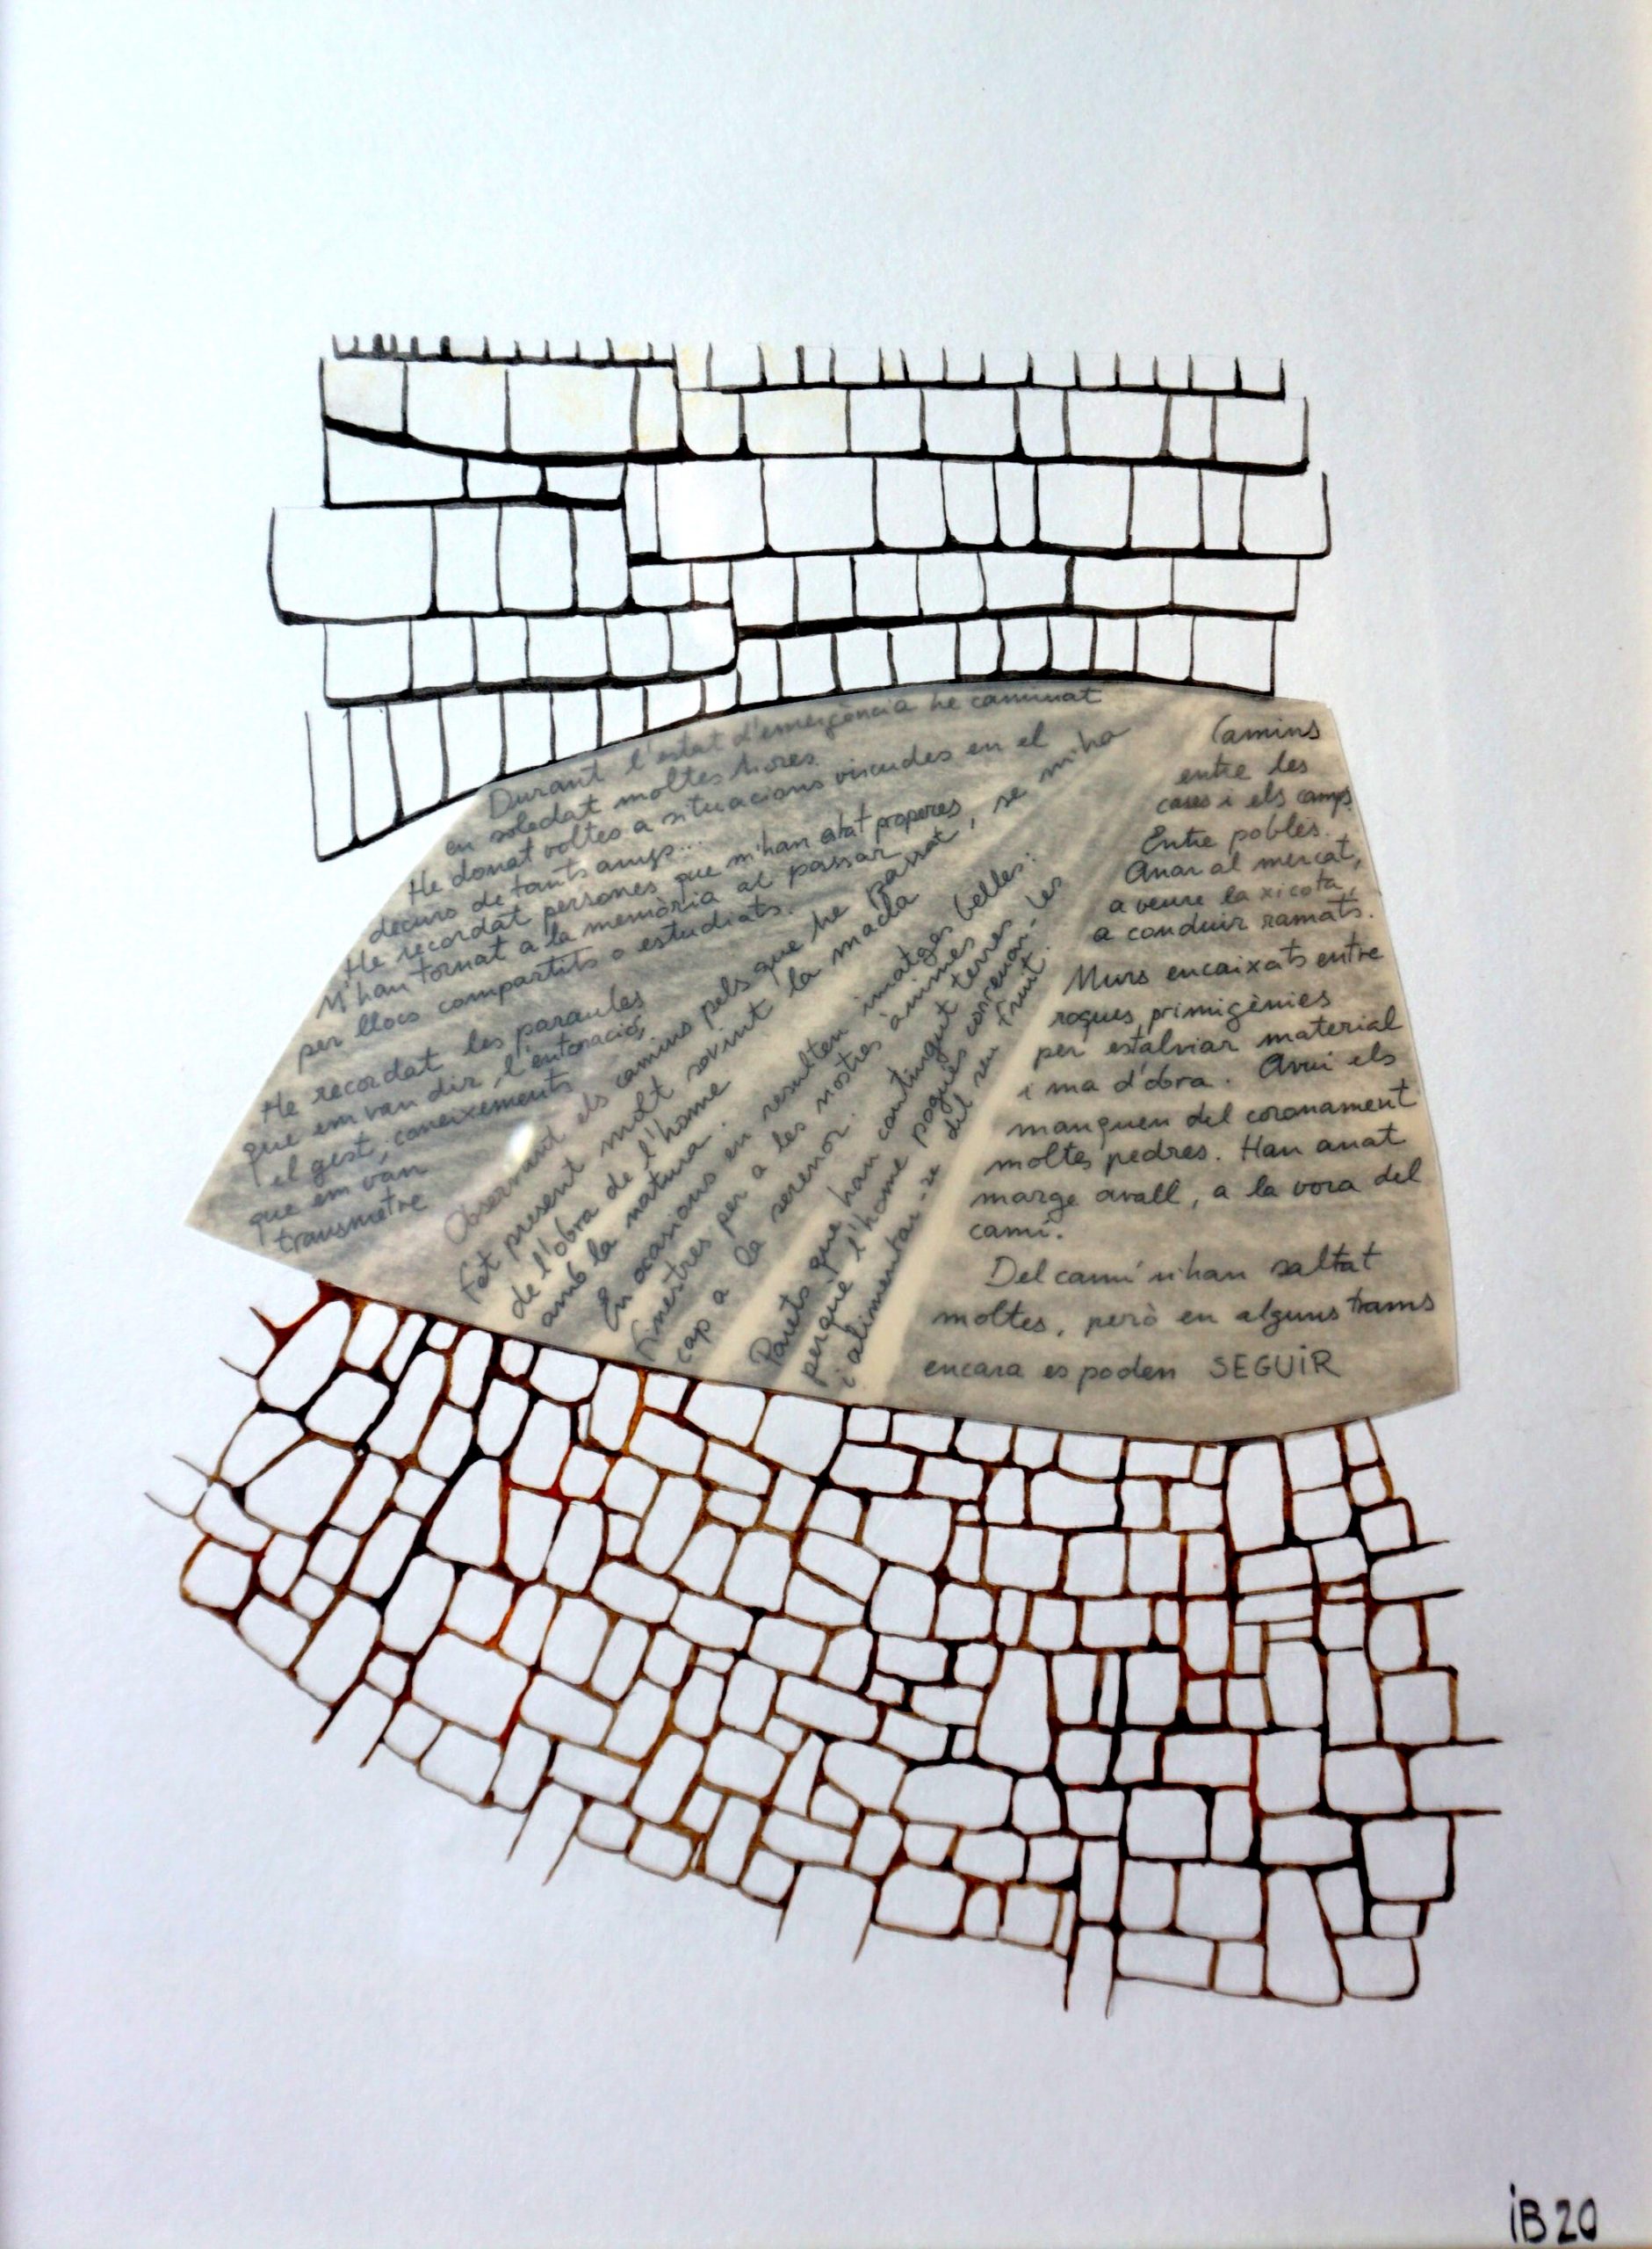 Durant l'estat d'emergència he caminat
en soledat moltes hores.
He donat voltes a situacions viscudes en el
decurs de tants anys...
He recordat persones que m'han estat properes
M'han tornat a la memòria al passar
per llocs compartits o estudiats.
He recordat les paraules
que em van dir, l'entonació,
el gest, coneixements
que em van
transmetre
Observant els camins pels que he passat, se m'ha
fet present molt sovint la macla
de l'obra de l'home
amb la natura.
En ocasions en resulten imatges belles:
Finestres per a les nostres ànimes
cap a la serenor.
Parets que han contingut terres
perquè l'home pogués conrear-les
i alimentar-se del seu fruit.
Camins
entre les
cases i els camps
Entre pobles.
Anar al mercat,
a veure la xicota,
a conduir ramats.
Murs encaixats entre
roques primigènies
per estalviar material
i ma d'obra. Avui els
manquen del coronament
moltes pedres. Han anat
marge avall, a la vora del
camí.
Del camí n'han saltat
moltes, però en alguns trams
encara es poden SEGUiR
iB20